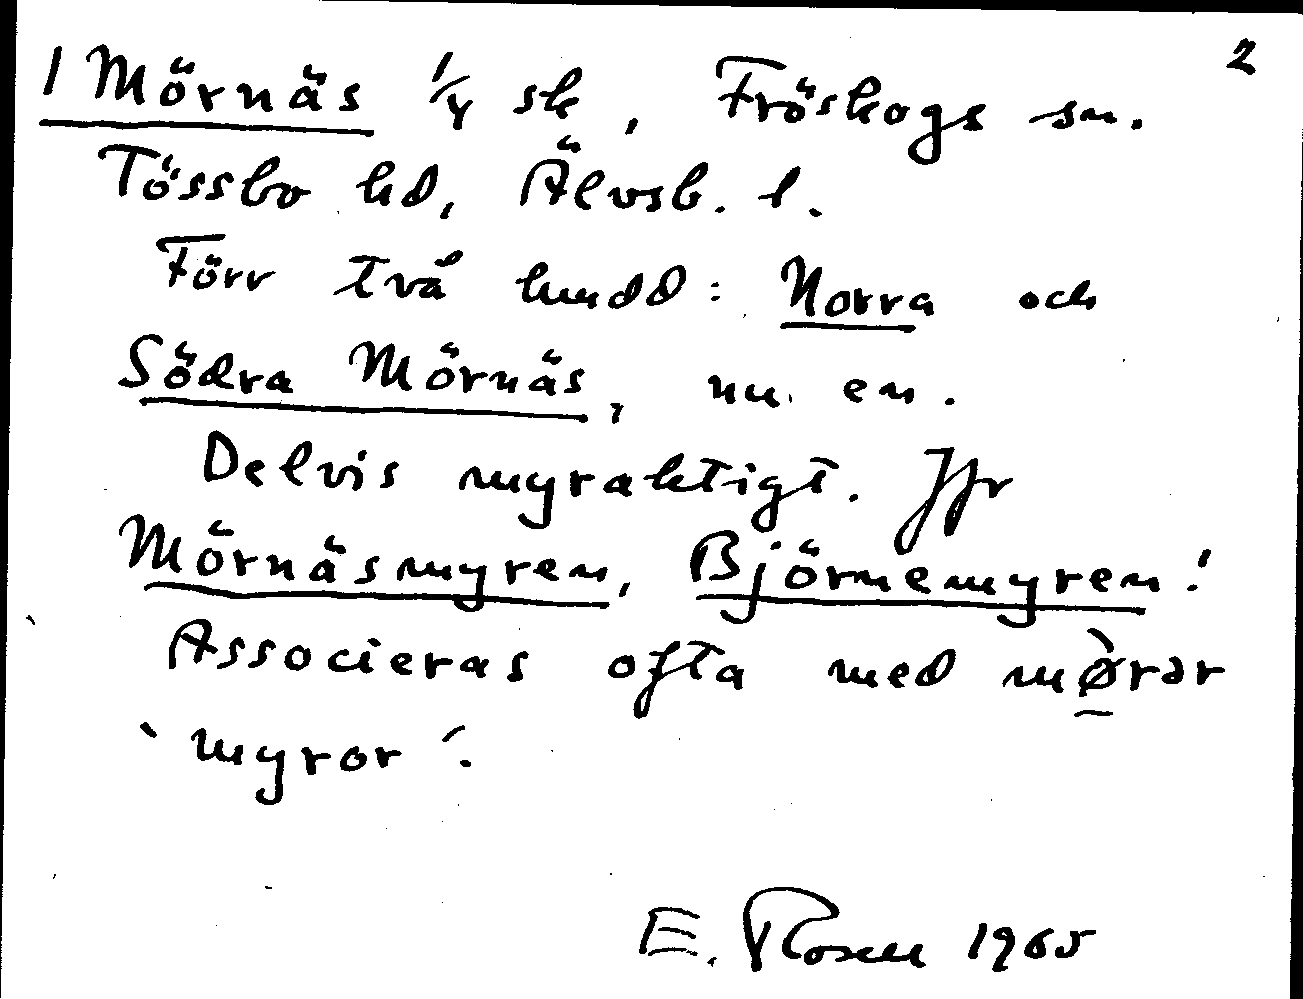 2
1 Mörnäs 1/4 sk, Fröskogs sn.
Tössbo hd, Älvsb. l.
Förr två hundd: Norra och
Södra Mörnäs, nu en.
Delvis myraktigt. Jfr
Mörnäsmyren, Björnemyren!
Associeras ofta med mø̀rər
'myror'.
E. Rosell 1965